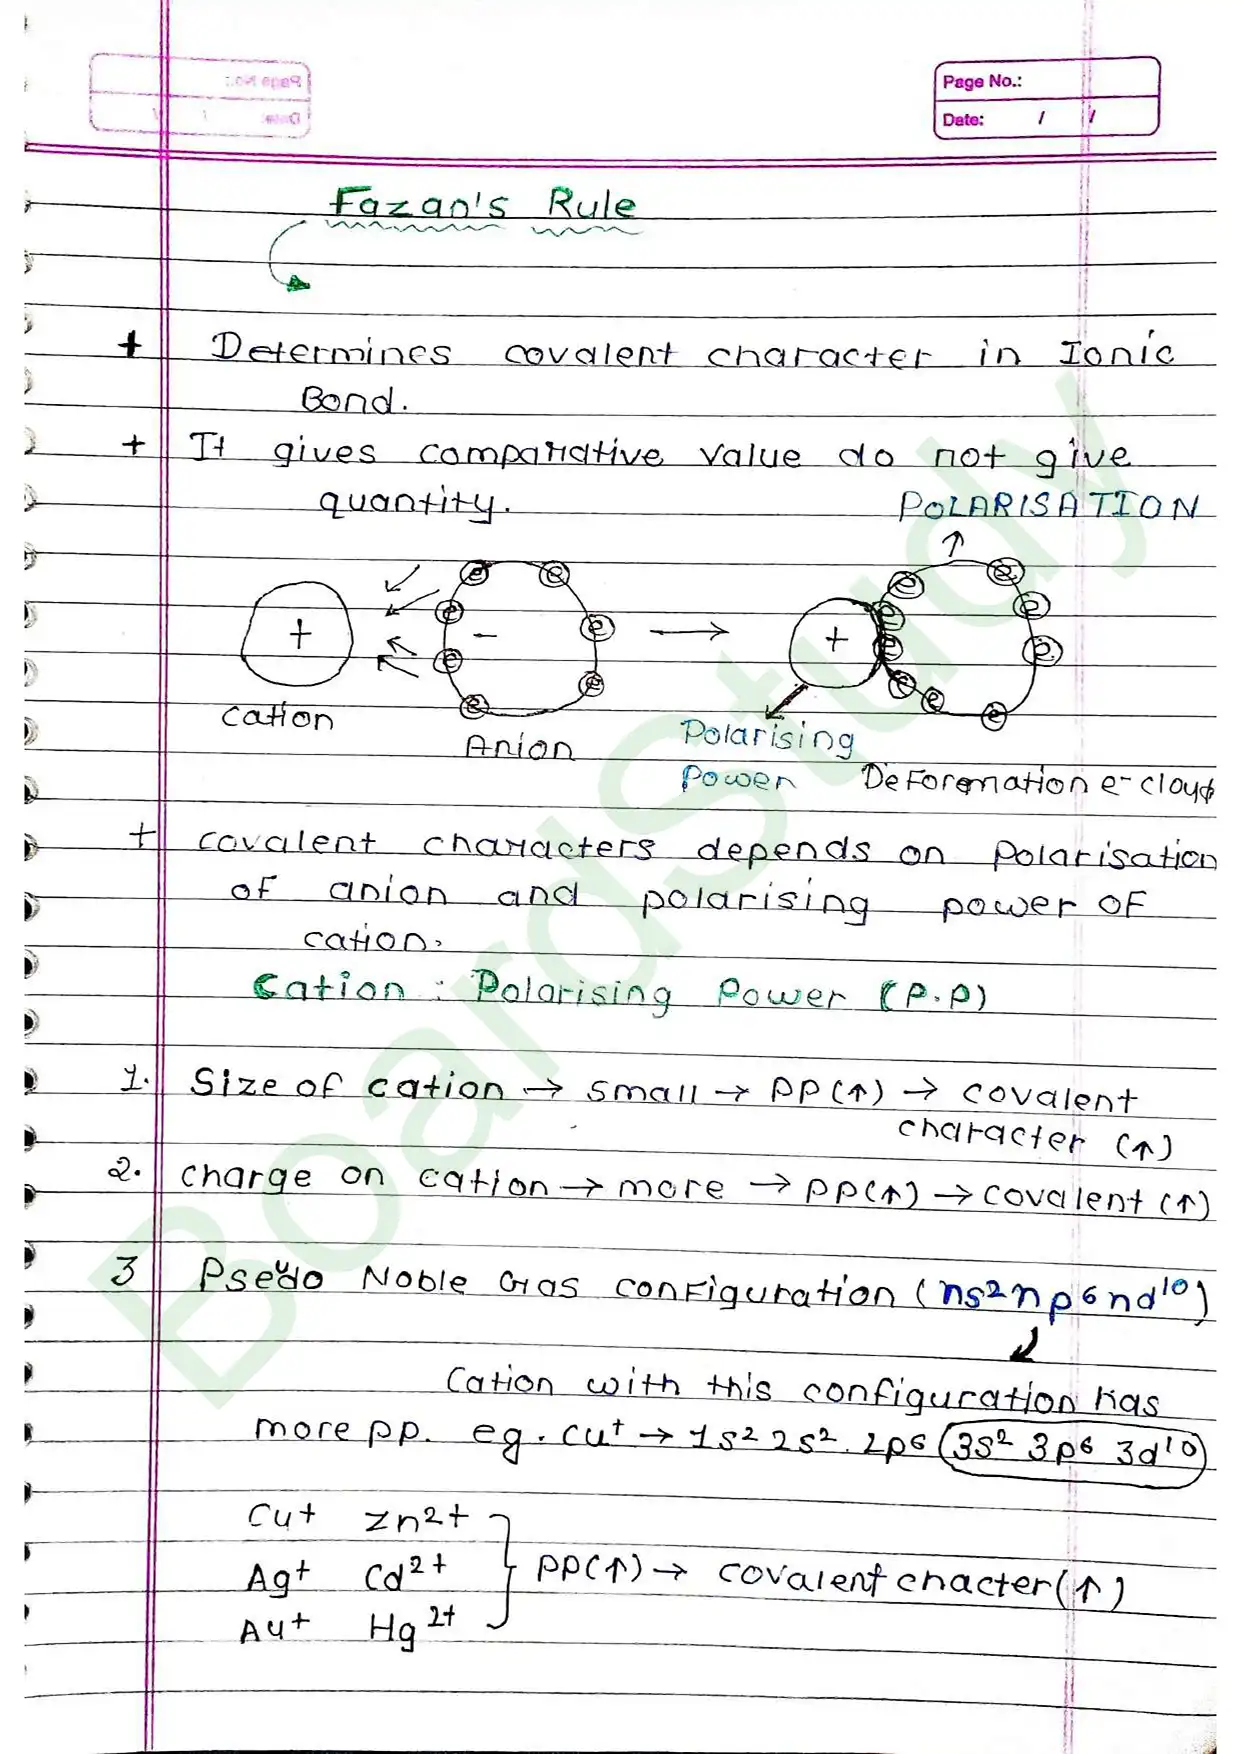 Page No.:
Date: / /
Page No.:
Date: / /
Fazan's Rule
+ Determines covalent character in Ionic
Bond.
+ It gives comparative value do not give
quantity.
POLARISATION
+ -
e e e e e e e
→
+
e e e e e e e e e
cation
Anion
Polarising
Power
Deformation e⁻ cloud
+ covalent characters depends on polarisation
of anion and polarising power of
cation.
Cation : Polarising Power (P.P)
1. Size of cation → small → PP (↑) → covalent
character (↑)
2. charge on cation → more → PP(↑) → covalent (↑)
3 Pseudo Noble Gas configuration (ns² np⁶ nd¹⁰)
Cation with this configuration has
more pp. eg. Cu⁺ → 1s² 2s². 2p⁶ (3s² 3p⁶ 3d¹⁰)
Cu⁺ Zn²⁺
Ag⁺ Cd²⁺ } PP(↑) → covalent chacter(↑)
Au⁺ Hg²⁺
BoardStudy